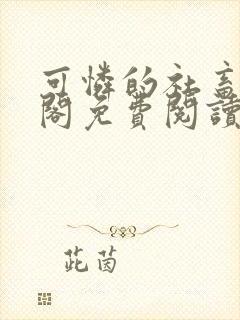 可憐的社畜
閣免費閱讀
茈茵